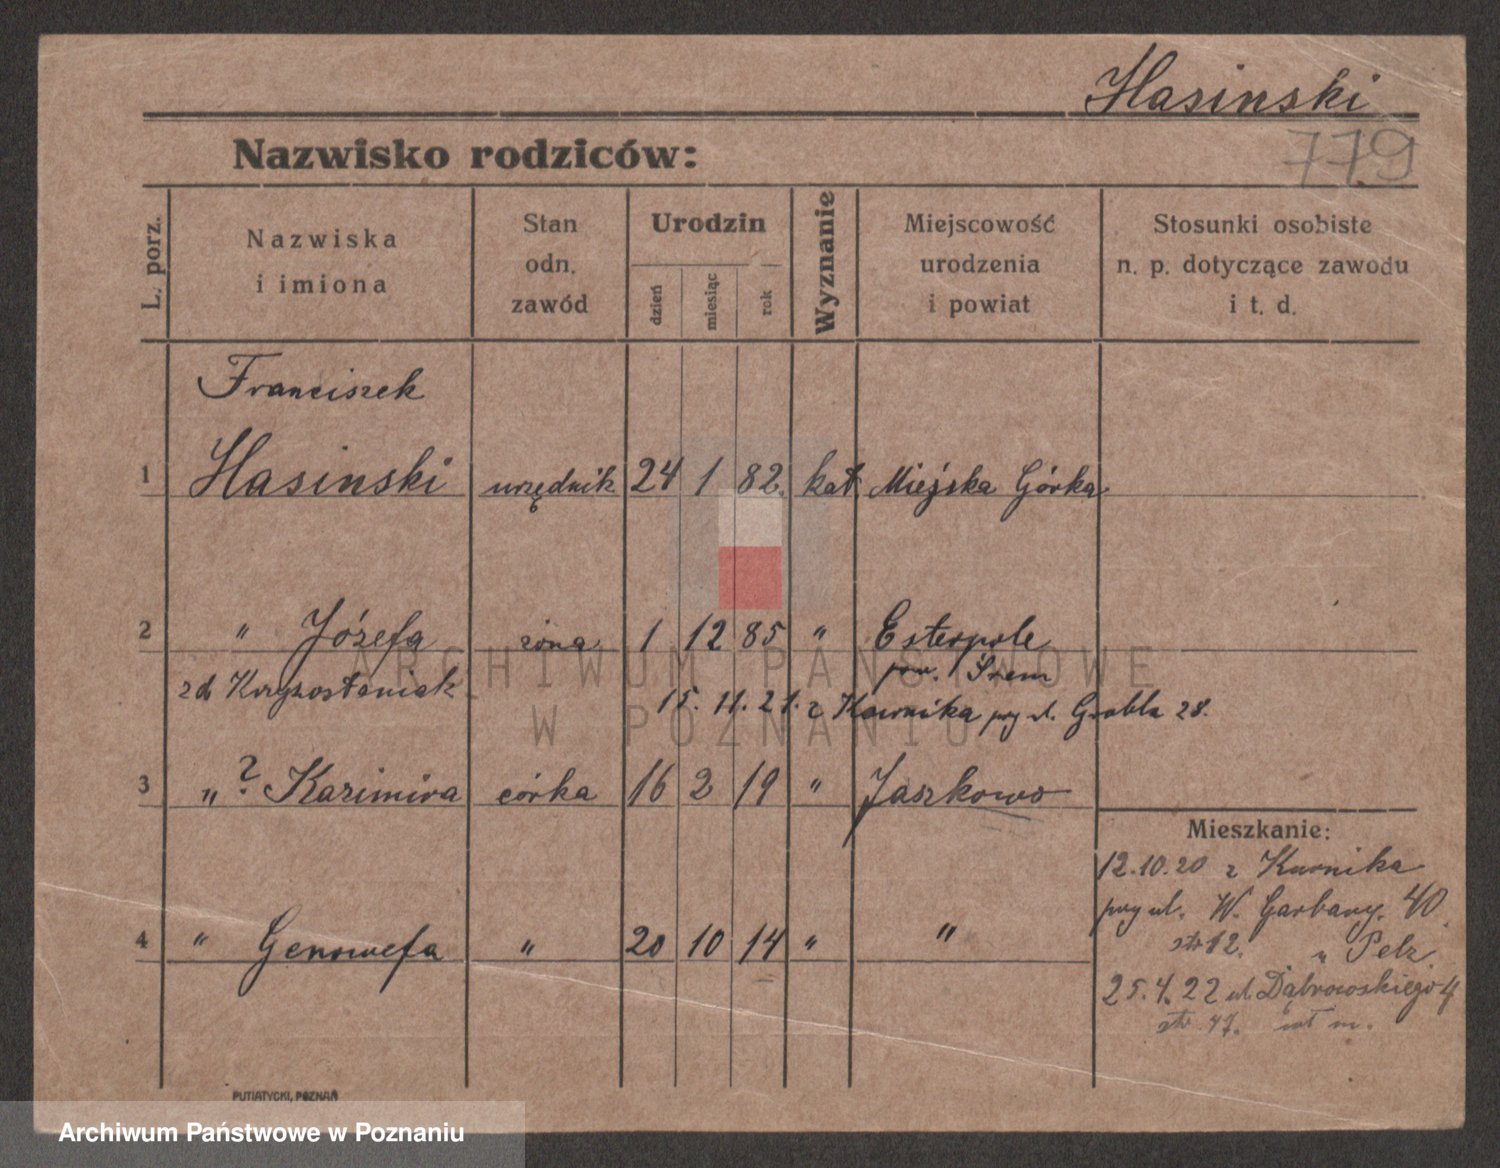 Hasinski
779
Nazwisko rodziców:
L. porz.
Nazwiska
i imiona
Stan
odn.
zawód
Urodzin
dzień
miesiąc
rok
Wyznanie
Miejscowość
urodzenia
i powiat
Stosunki osobiste
n. p. dotyczące zawodu
i t. d.
Franciszek
1 Hasinski urzędnik 24 1 82. kat Miejska Górka
2 " Józefa żona 1 12 85 " Esterpole
pow. Śrem
zd Krzyżostaniak
15. 11. 21. z Kurnika przy ul. Grobla 28.
3 " ? Kazimira córka 16 2 19 " Jaszkowo
Mieszkanie:
12.10.20 z Kurnika
przy ul. W. Garbary. 40.
4 " Genowefa " 20 10 14 " "
str 12. u Pelz.
25.4.22 ul Dąbrowskiego 4
str 47. m.
PUTIATYCKI, POZNAŃ
ARCHIWUM PAŃSTWOWE
W POZNANIU
Archiwum Państwowe w Poznaniu